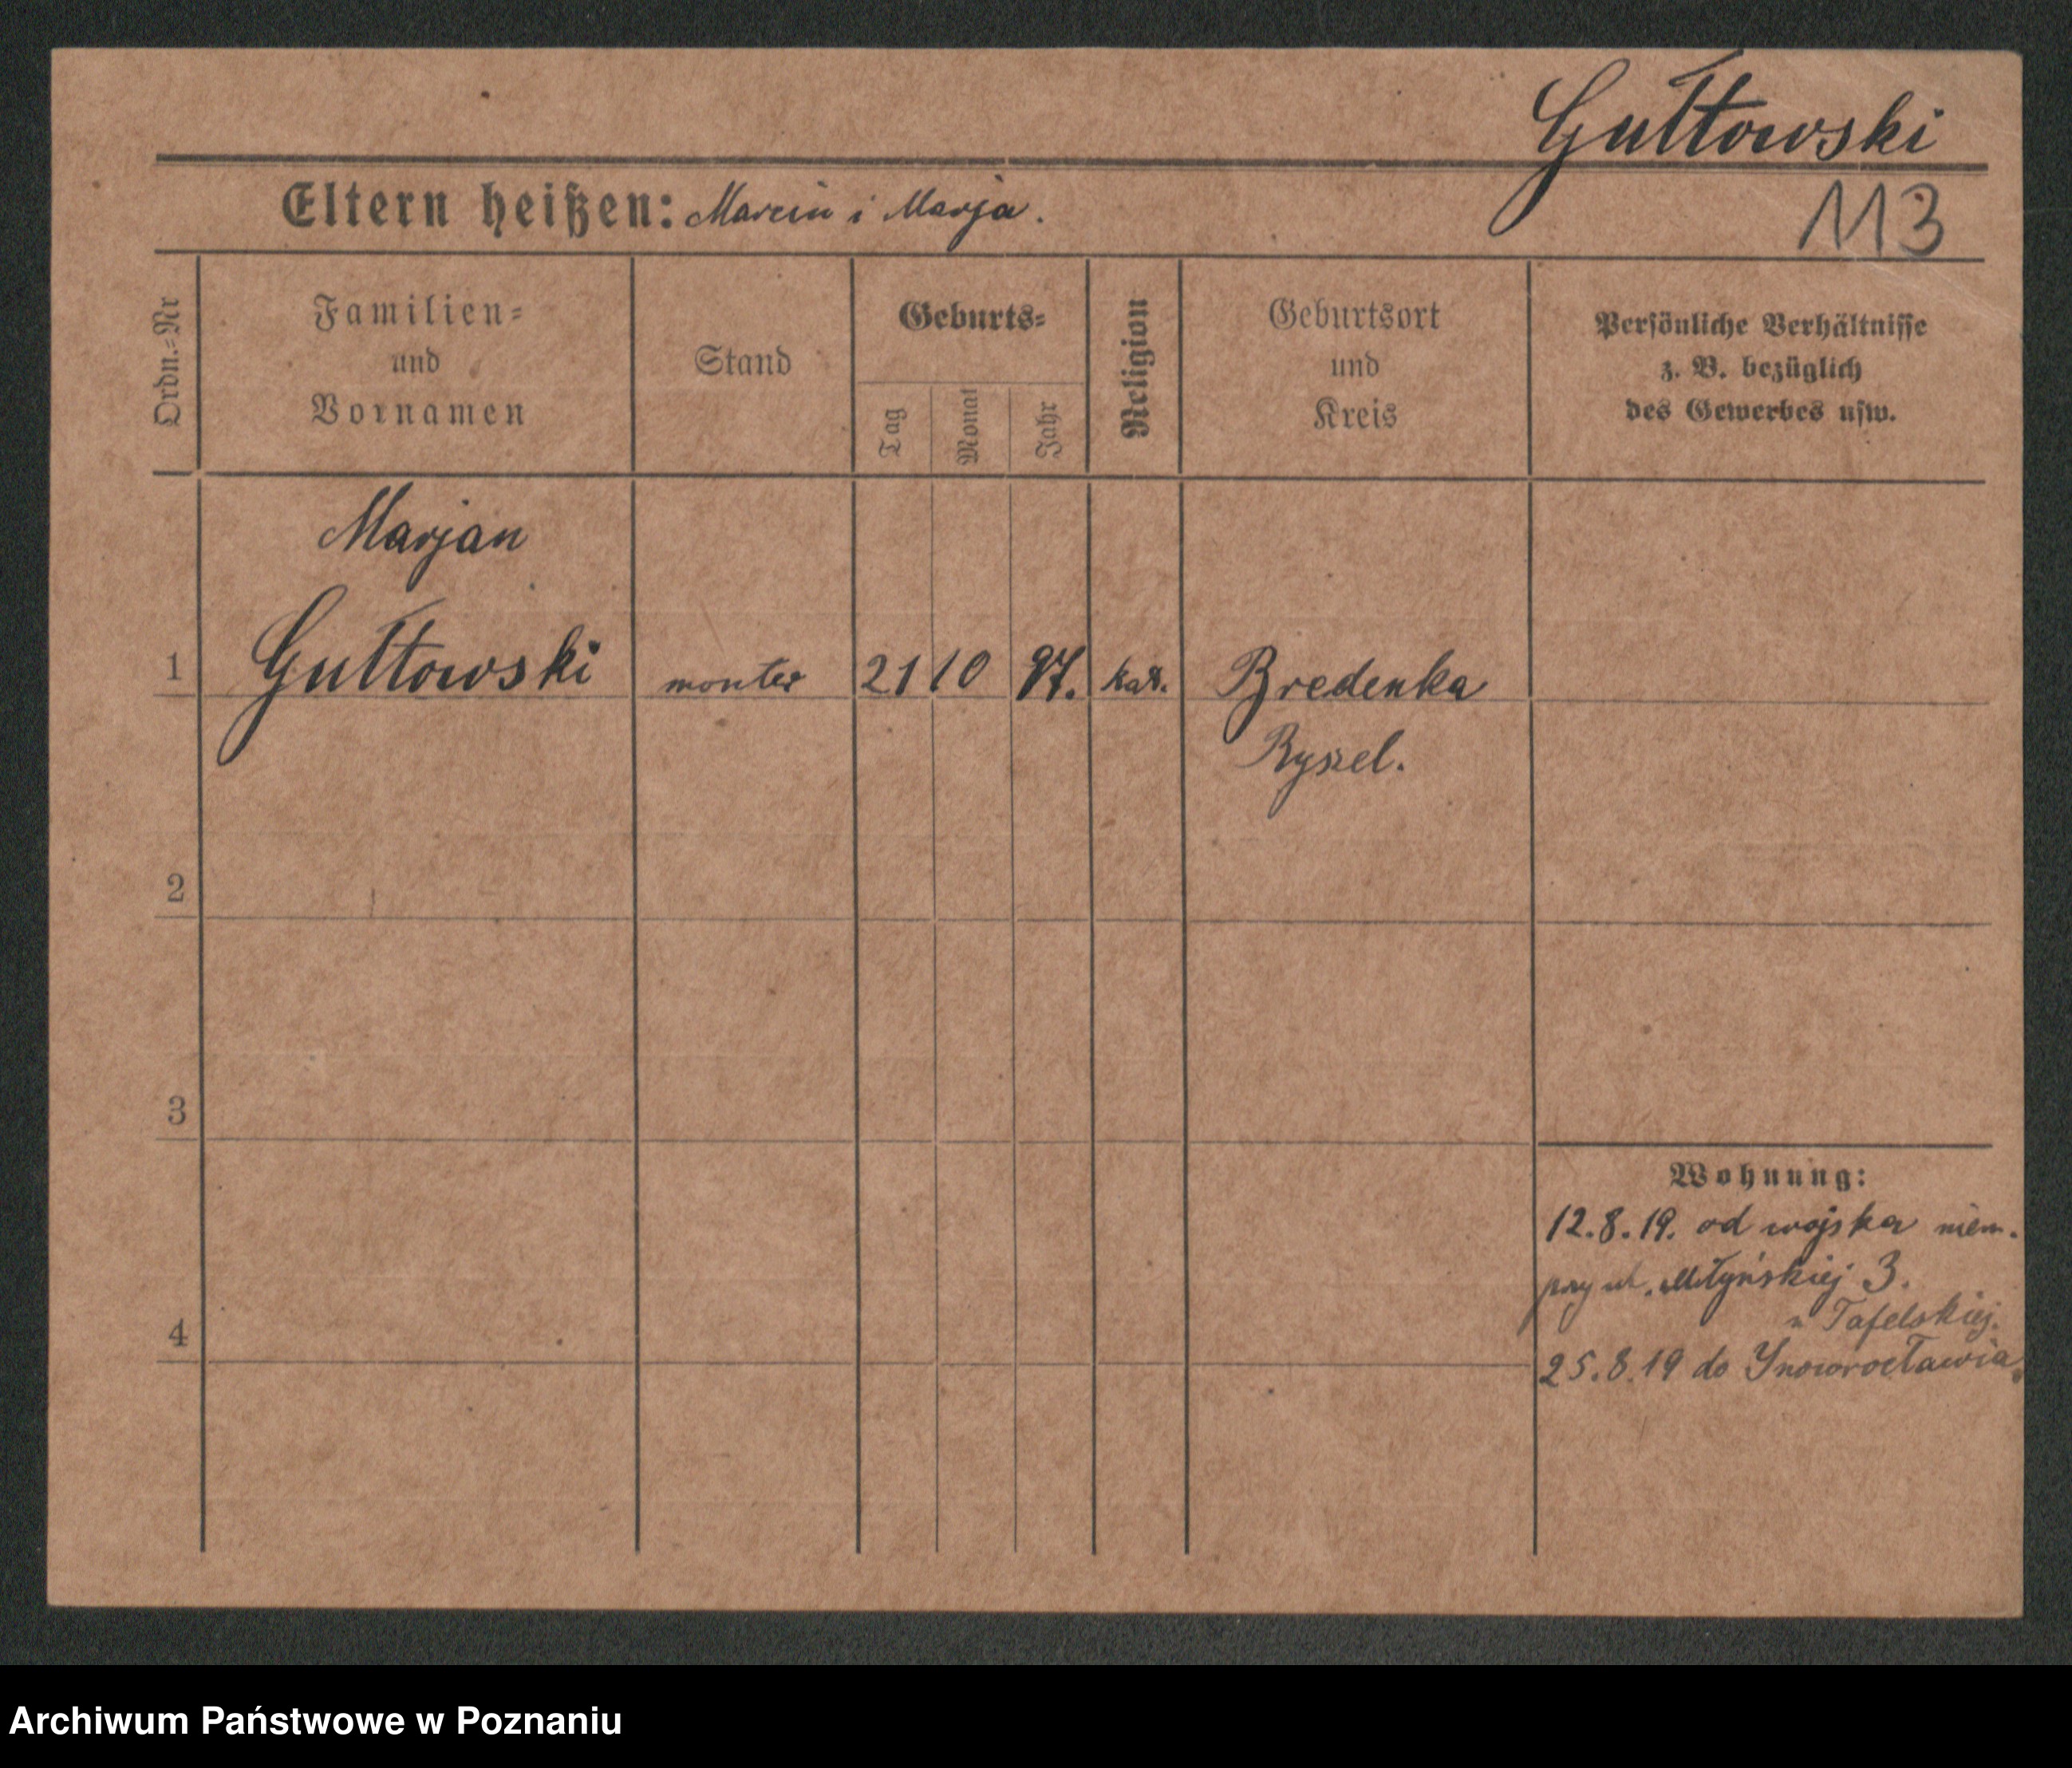 Gułtowski
Eltern heißen: Marcin i Marja.
113
Ordn.=Nr
Familien=
und
Vornamen
Stand
Geburts=
Tag
Monat
Jahr
Religion
Geburtsort
und
Kreis
Persönliche Verhältnisse
z. B. bezüglich
des Gewerbes usw.
Marjan
1 Gułtowski monter 21 10 97. kat. Bredenka
Ryszel.
2
3
4
Wohnung:
12.8.19. od wojska niem.
przy ul. Młyńskiej 3.
u Tafelskiej.
25.8.19 do Inowrocławia.
Archiwum Państwowe w Poznaniu